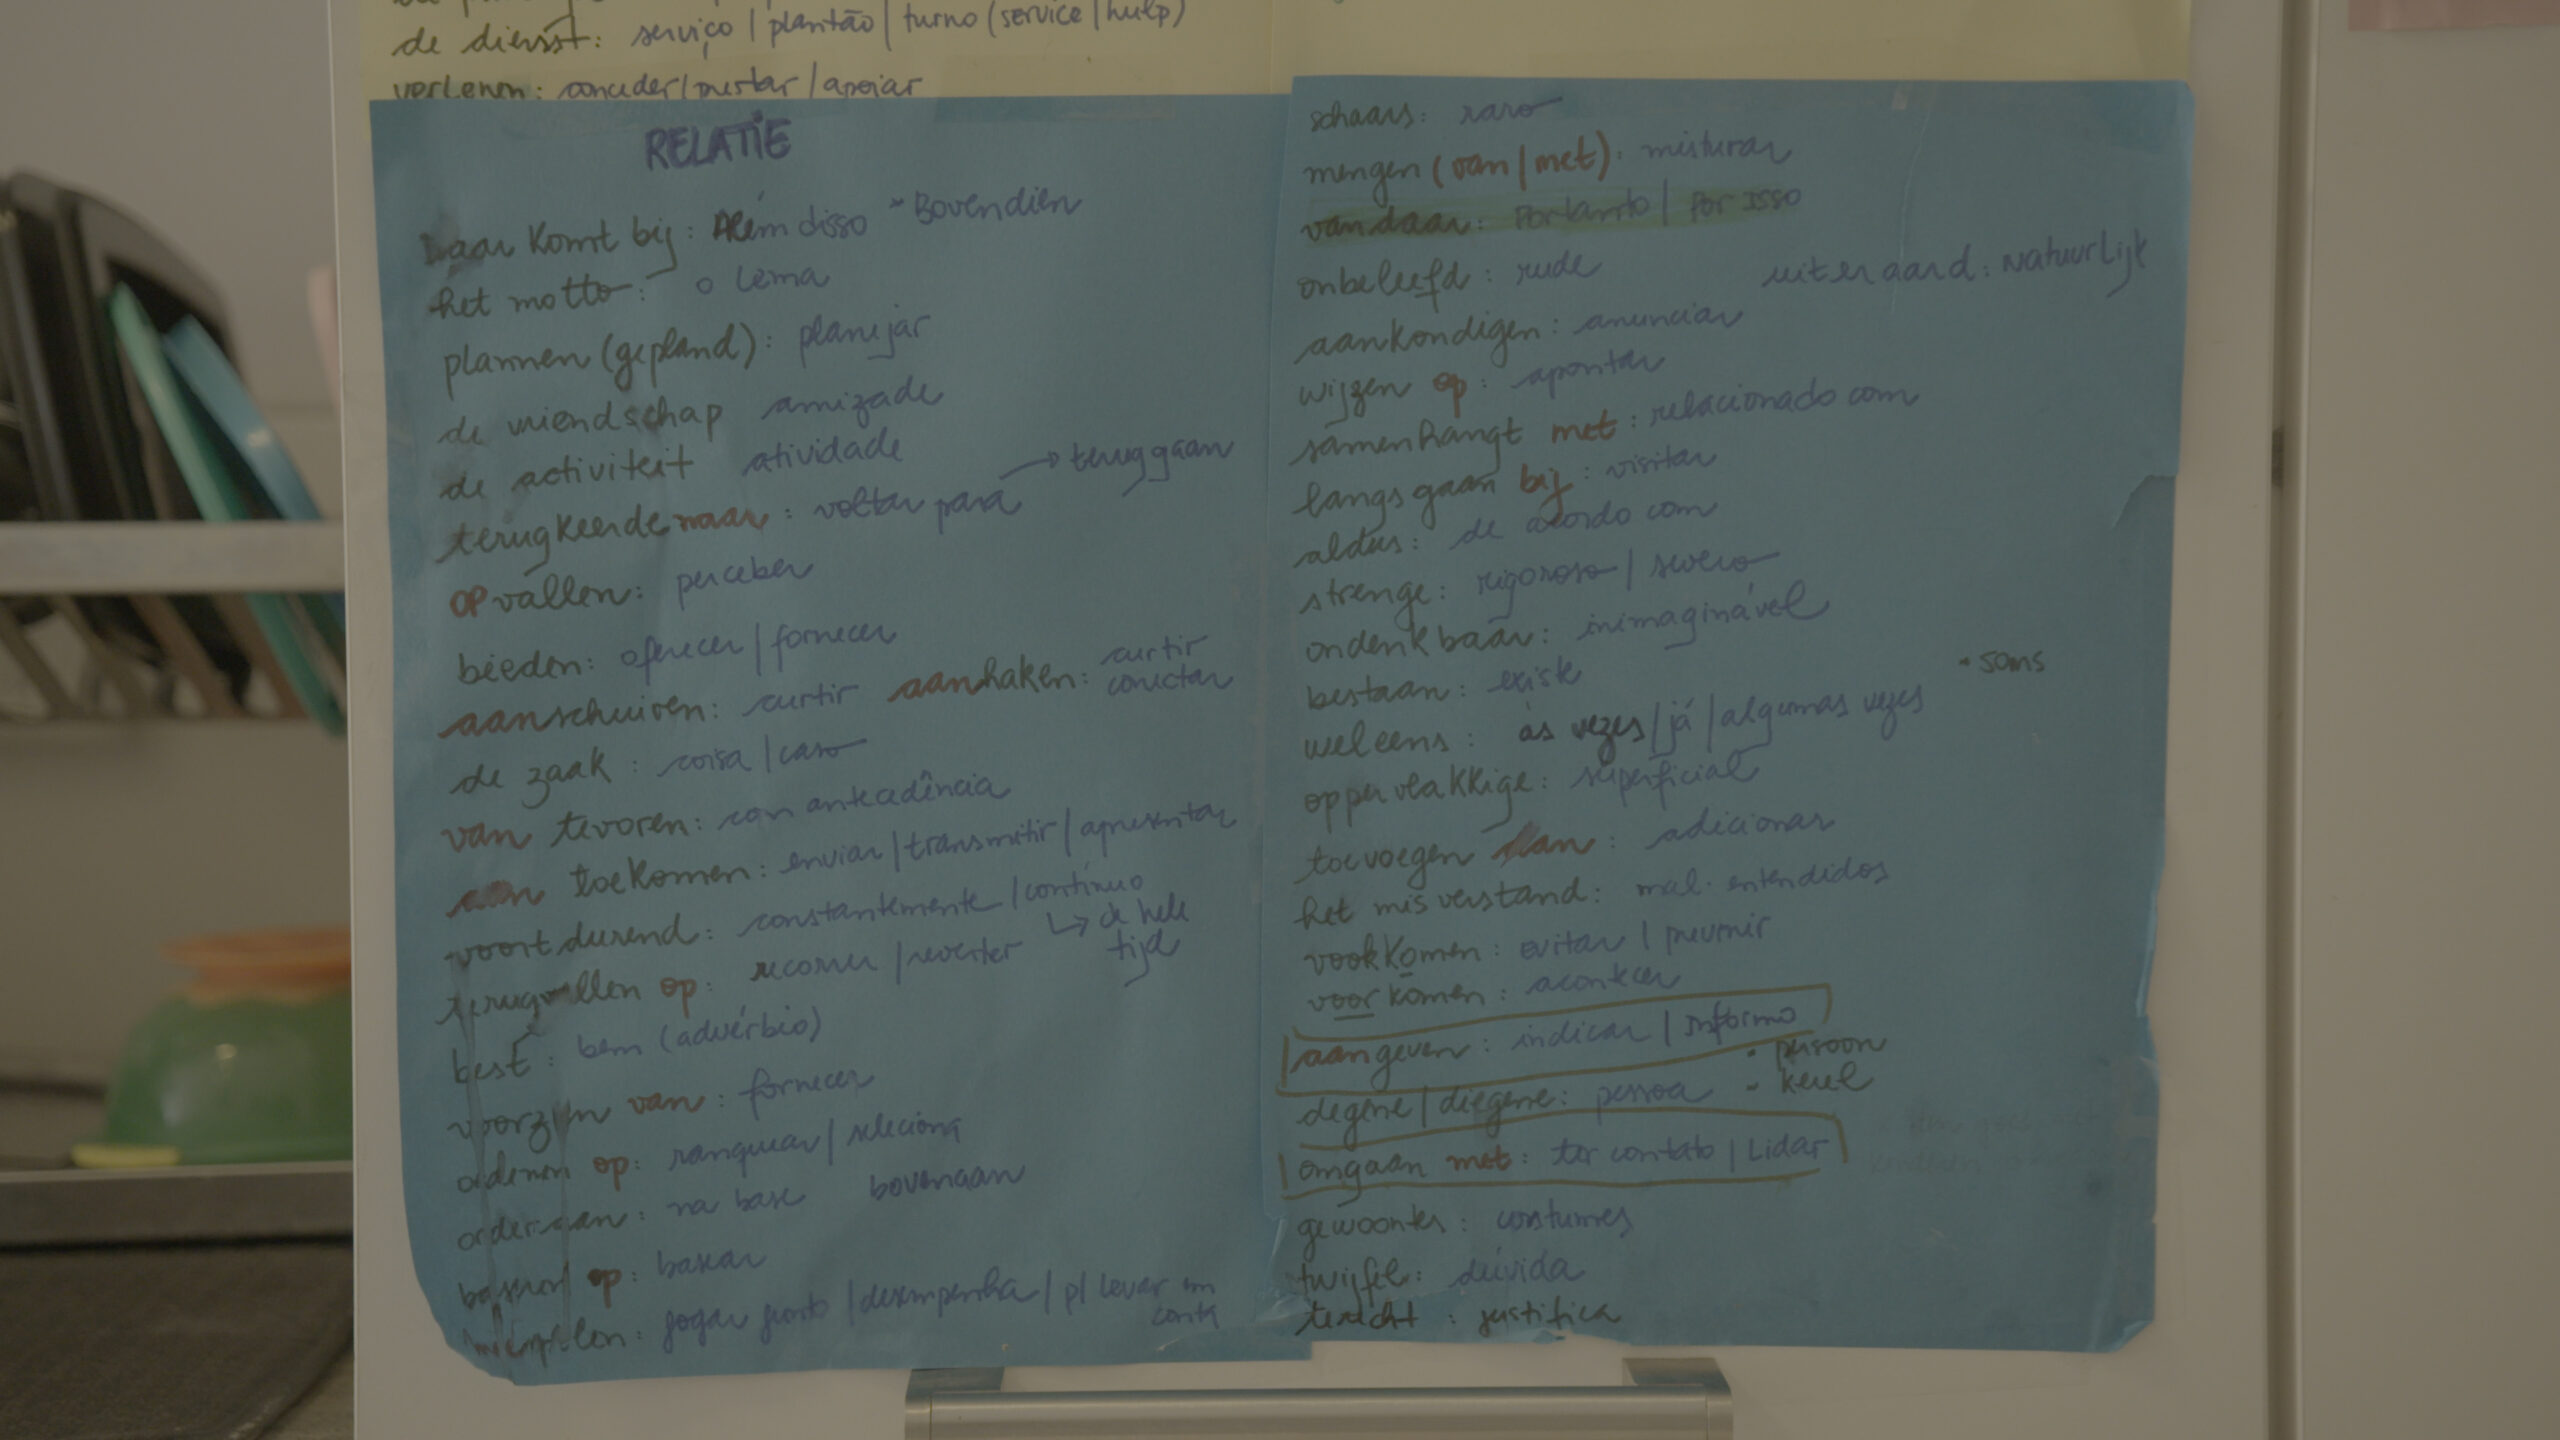 de dienst: serviço / plantão / turno (service / hulp)
verlenen: conceder / prestar / apoiar
RELATIE
Daar komt bij: Além disso * Bovendien
het motto: o lema
plannen (gepland): planejar
de vriendschap amizade
de activiteit atividade
terugkeerde naar: voltar para → teruggaan
opvallen: perceber
bieden: oferecer / fornecer
aanschuiven: curtir aanhaken: curtir
conectar
de zaak: coisa / caso
van tevoren: com antecedência
aan toekomen: enviar / transmitir / apresentar
voortdurend: constantemente / contínuo
↳ de hele
tijd
terugvallen op: recorrer / reverter
best: bem (advérbio)
voorzien van: fornecer
ordenen op: ranquear / seleciona
onderaan: na base bovenaan
baseren op: basear
jogar junto / desempenha / p/ levar em
conta
schaars: raro
mengen (van / met): misturar
vandaar: Portanto / Por isso
onbeleefd: rude
uiteraard: Natuurlijk
aankondigen: anunciar
wijzen op: apontar
samenhangt met: relacionado com
langsgaan bij: visitar
aldus: de acordo com
strenge: rigoroso / severo
ondenkbaar: inimaginável
bestaan: existe
weleens: às vezes / já / algumas vezes * soms
oppervlakkige: superficial
toevoegen aan: adicionar
het misverstand: mal-entendidos
vookkomen: evitar / prevenir
voorkomen: acontecer
aangeven: indicar / informo
degene / diegene: pessoa - persoon
- kerel
omgaan met: ter contato / Lidar
gewoontes: costumes
twijfel: dúvida
terecht: justifica